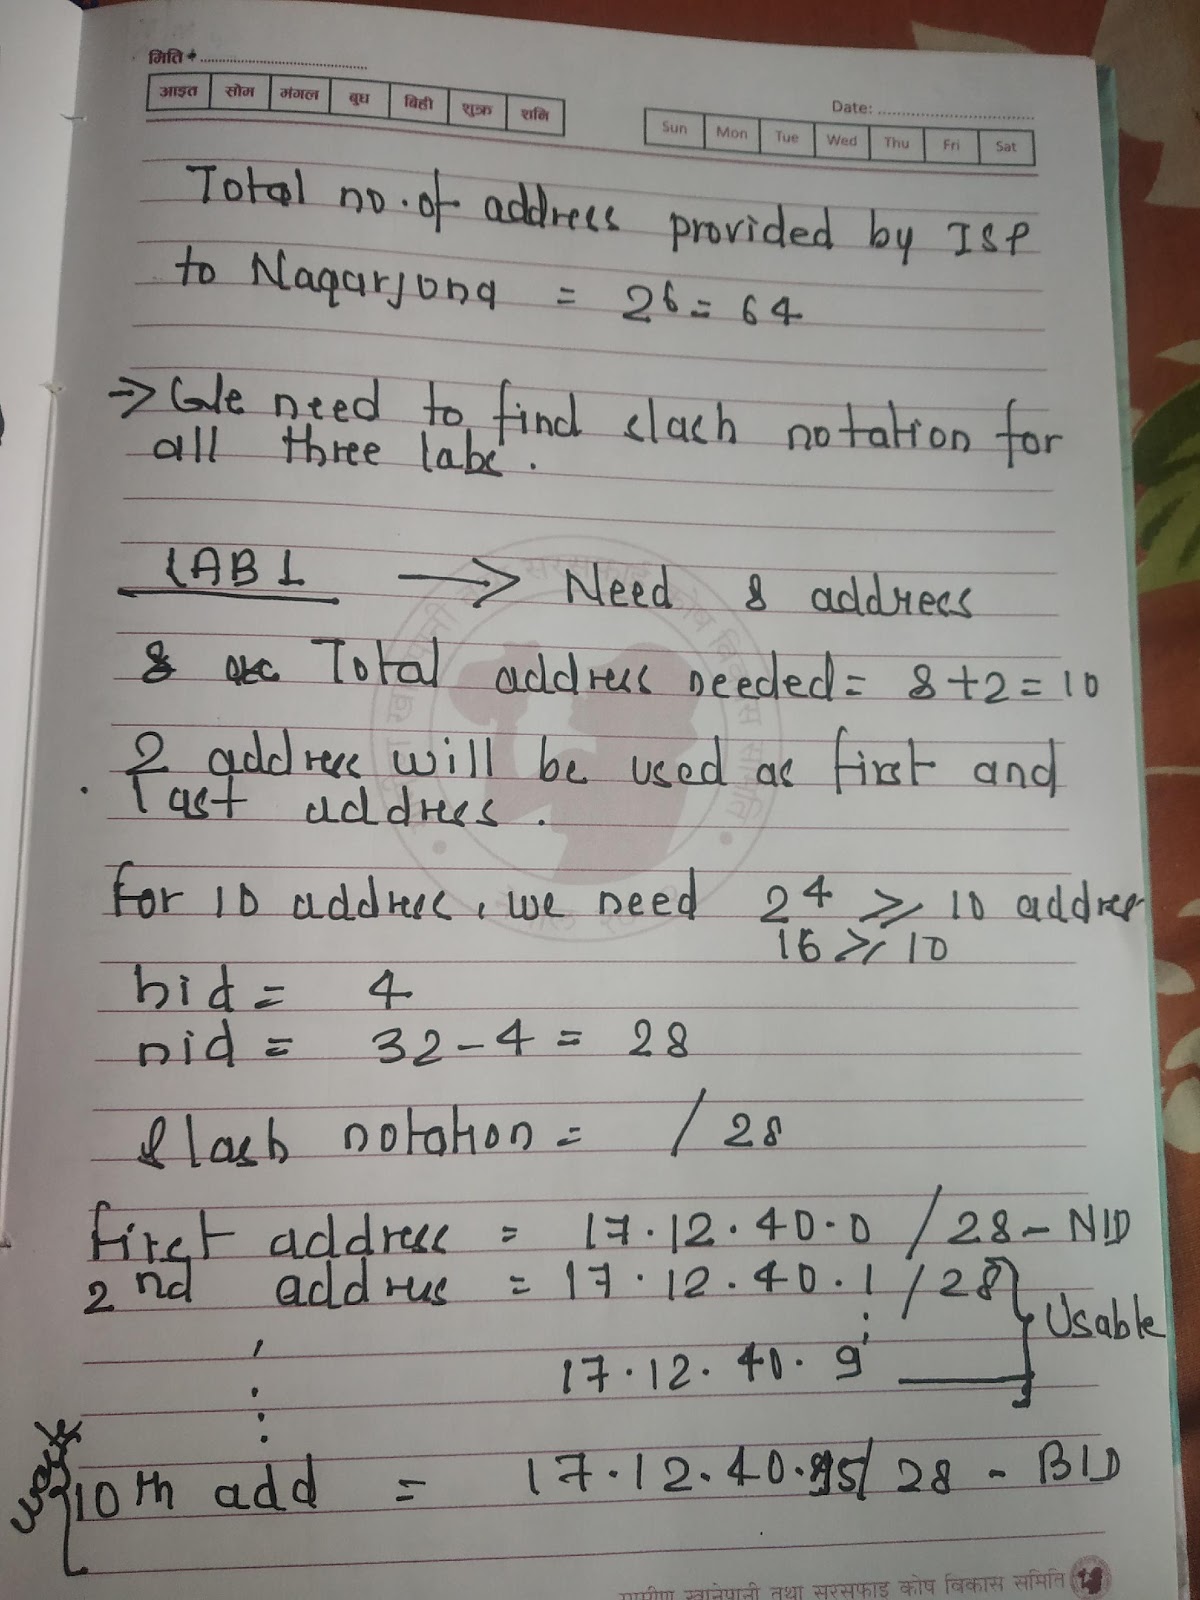 मिति :
आइत सोम मंगल बुध बिही शुक्र शनि
Date:
Sun Mon Tue Wed Thu Fri Sat
Total no. of address provided by ISP
to Nagarjona = 2⁶ = 64
→ We need to find slash notation for
all three labs.
LAB 1 → Need 8 address
Total address needed = 8+2 = 10
2 address will be used as first and
last address.
for 10 address, we need 2⁴ ≥ 10 addres
16 ≥ 10
hid = 4
nid = 32 - 4 = 28
slash notation = /28
first address = 17.12.40.0 /28 - NID
2nd address = 17.12.40.1 /28
Usable
17.12.40.9
10th add = 17.12.40.15/28 - BID
ग्रामीण खानेपानी तथा सरसफाइ कोष विकास समिति